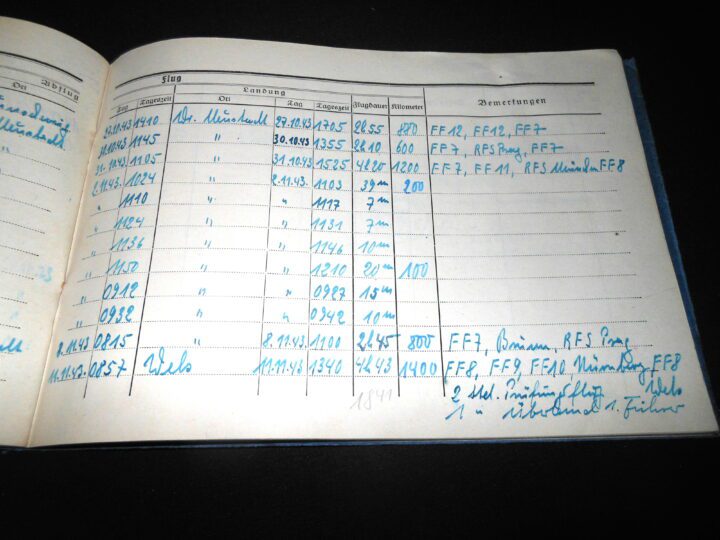 Abflug
Flug
Landung
Ort
Tag
Tageszeit
Ort
Tag
Tageszeit
Flugdauer
Kilometer
Bemerkungen
Neustadt
27.10.43 1410 Wr. Neustadt 27.10.43 1705 2h55 880 FF12, FF12, FF7
30.10.43 1145 " 30.10.43 1355 2h10 600 FF7, RFS Prag, FF7
31.10.43 1105 " 31.10.43 1525 4h20 1200 FF7, FF11, RFS München FF8
2.11.43. 1024 " 2.11.43. 1103 39m 200
" 1110 " " 1117 7m
" 1124 " " 1131 7m
" 1136 " " 1146 10m
" 1150 " 1210 20m 100
" 0912 " " 0927 15m
" 0932 " " 0942 10m
8.11.43 0815 " 8.11.43. 1100 2h45 800 FF7, Brünn, RFS Prag
11.11.43. 0857 Wels 11.11.43 1340 4h43 1400 FF8, FF9, FF10, Nürnberg, FF8
1841 2 Prüfungsflug Wels
1 " Überland 1. Führer